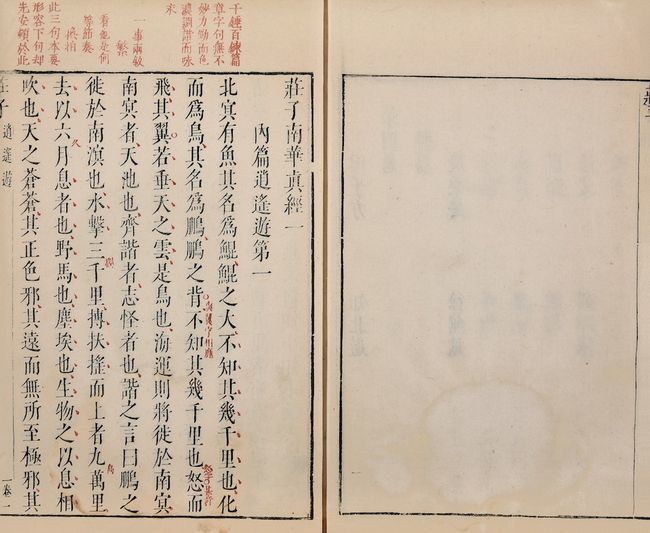 千錘百鍊篇
章字句無不
妙力勁而色
濃調諧而味
一事兩敘
此三句本要
形容下句却
先安頓於此
莊子南華真經一
內篇逍遙遊第一
北冥有魚其名爲鯤鯤之大不知其幾千里也化
而爲鳥其名爲鵬鵬之背不知其幾千里也怒而
飛其翼若垂天之雲是鳥也海運則將徙於南冥
南冥者天池也齊諧者志怪者也諧之言曰鵬之
徙於南溟也水擊三千里摶扶搖而上者九萬里
去以六月息者也野馬也塵埃也生物之以息相
吹也天之蒼蒼其正色邪其遠而無所至極邪其
莊子 逍遙遊 卷一